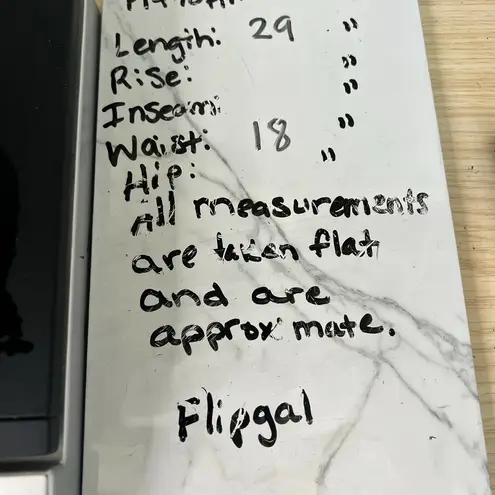 Length: 29 "
Rise: "
Inseam: "
Waist: 18 "
Hip: "
All measurements
are taken flat
and are
approximate.
Flipgal